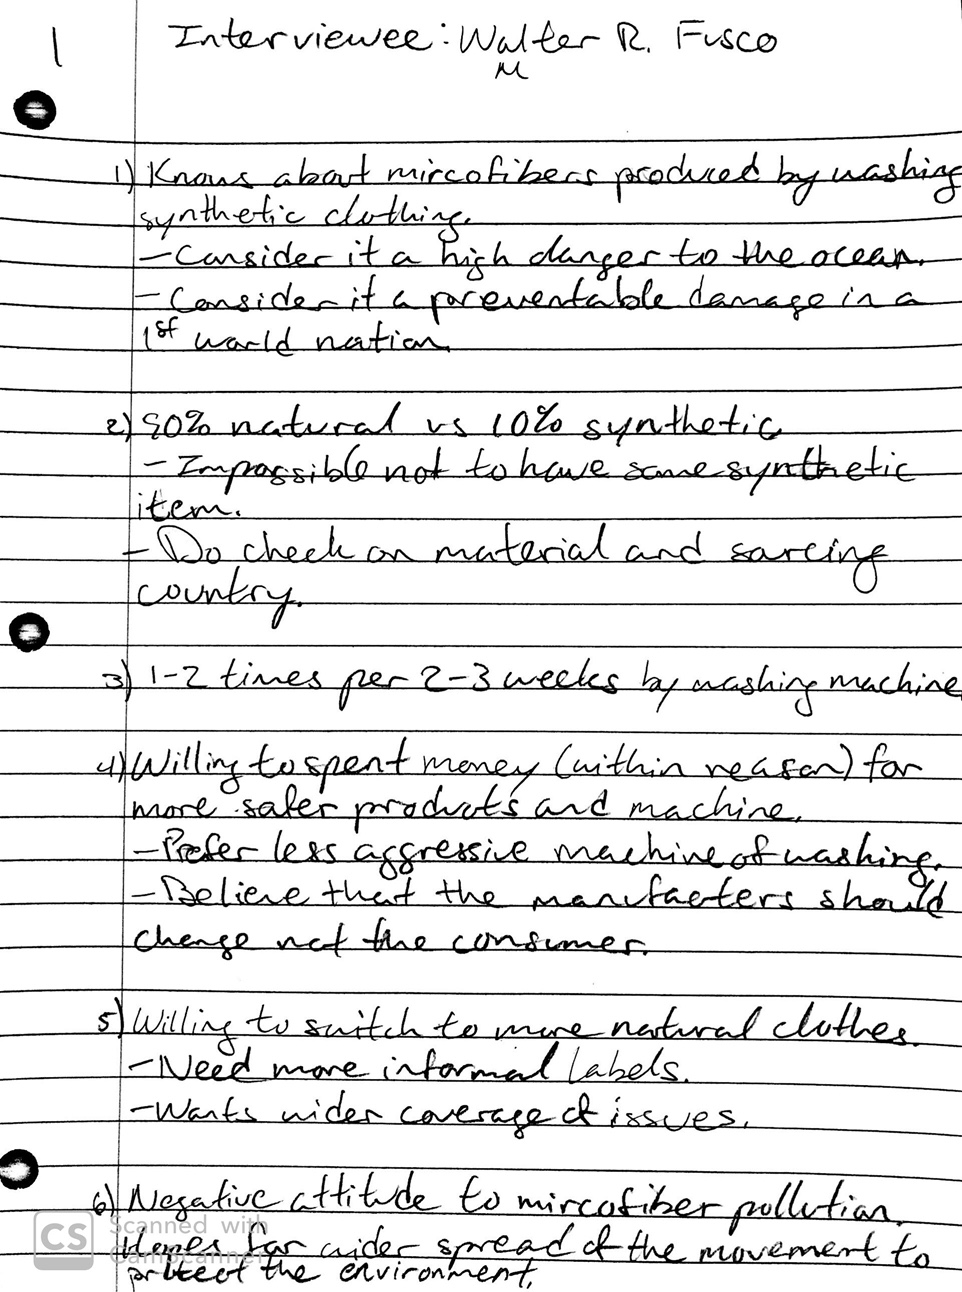 1
Interviewee: Walter R. Fusco
M
1) Knows about mircofibers produced by washing
synthetic clothing.
- Consider it a high danger to the ocean.
- Consider it a preventable damage in a
1st world nation.
2) 90% natural vs 10% synthetic
- Impossible not to have some synthetic
item.
- Do check on material and sarcing
country.
3) 1-2 times per 2-3 weeks by washing machine
4) Willing to spent money (within reason) for
more safer products and machine.
- Prefer less aggressive machine of washing.
- Believe that the manufacters should
change not the consumer.
5) Willing to switch to more natural clothes.
- Need more informal labels.
- Wants wider coverage of issues.
6) Negative attitude to mircofiber pollution.
Hopes for wider spread of the movement to
protect the environment.
CS Scanned with
CamScanner